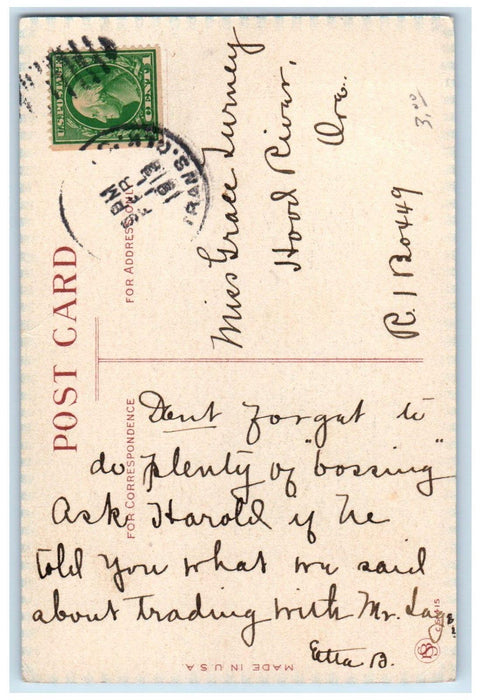 POST CARD
FOR CORRESPONDENCE
FOR ADDRESS ONLY
U.S. POSTAGE
1 CENT 1
TRANS. CLK.
3.00
Miss Grace Turney
Hood River,
Ore.
R. 1 Box 449
Dont forget to
do plenty of "bossing"
Ask Harold if he
told you what we said
about trading with Mr.
Etta B.
MADE IN U.S.A